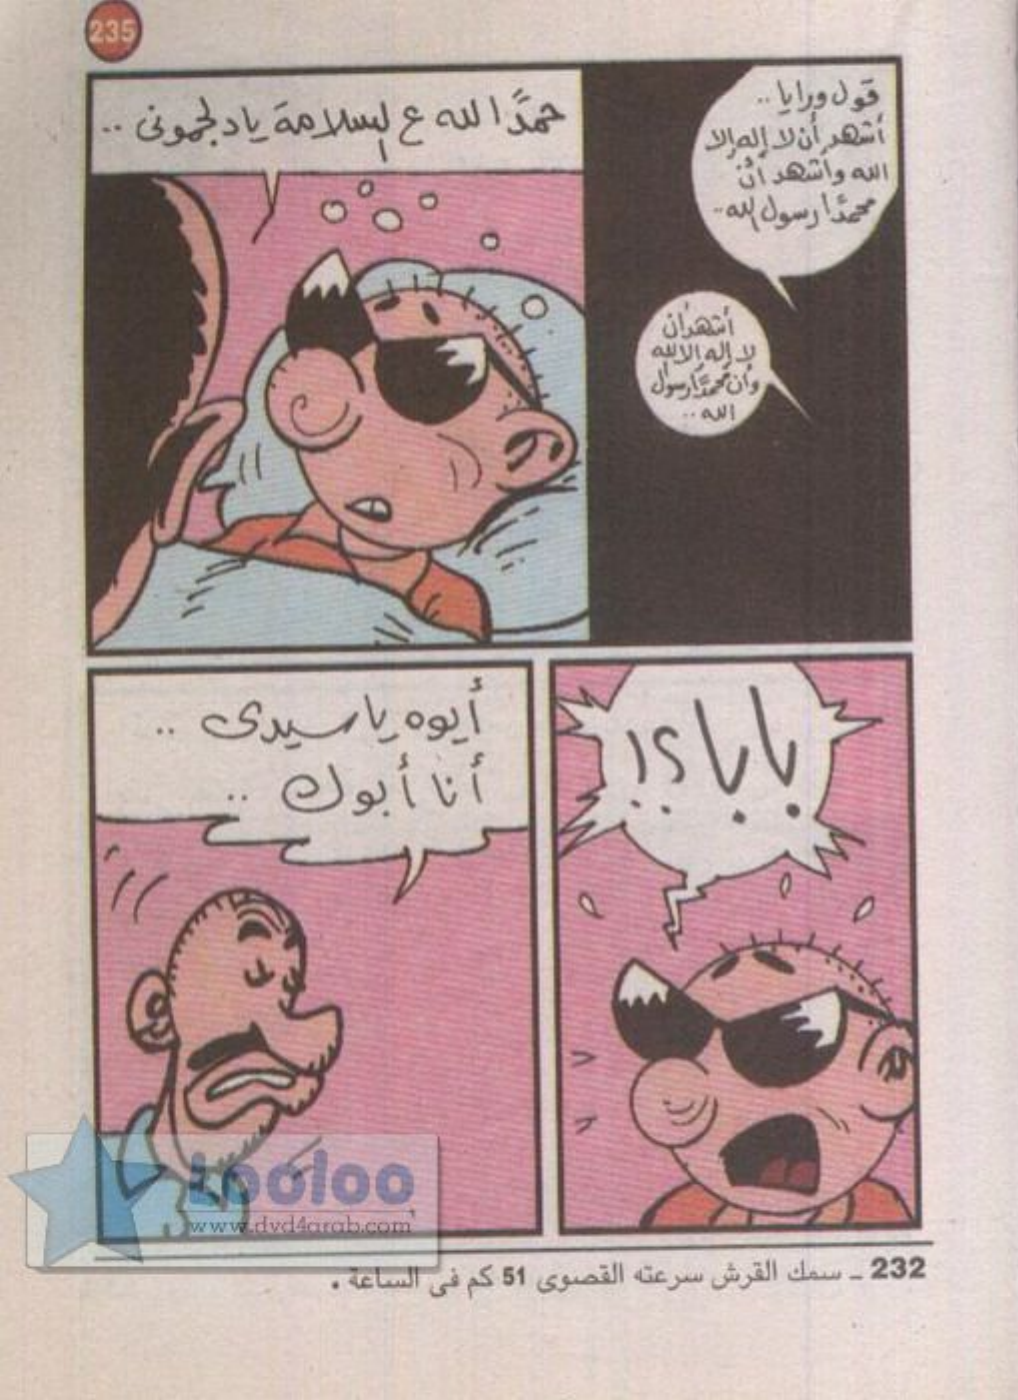 235
قول ورايا ..
أشهد أن لا إله إلا
الله وأشهد أن
محمدًا رسول الله ..
أشهد أن
لا إله إلا الله
وأن محمدًا رسول
الله ..
حمدًا لله ع السلامة ياد لجمونى ..
بابا؟!
أيوه يا سيدى ..
أنا أبوك ..
Looloo
www.dvd4arab.com
232 ـ سمك القرش سرعته القصوى 51 كم فى الساعة .